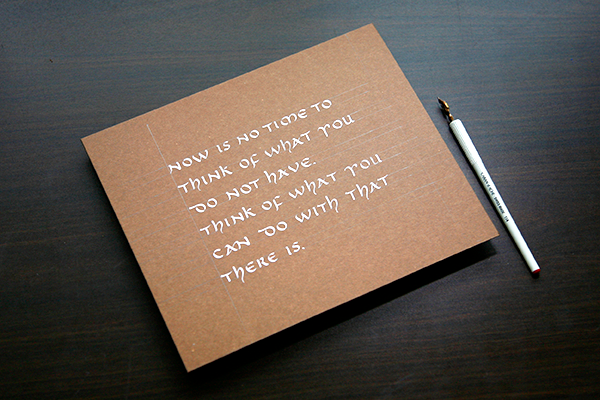 NOW IS NO TIME TO
THINK OF WHAT YOU
DO NOT HAVE.
THINK OF WHAT YOU
CAN DO WITH THAT
THERE IS.